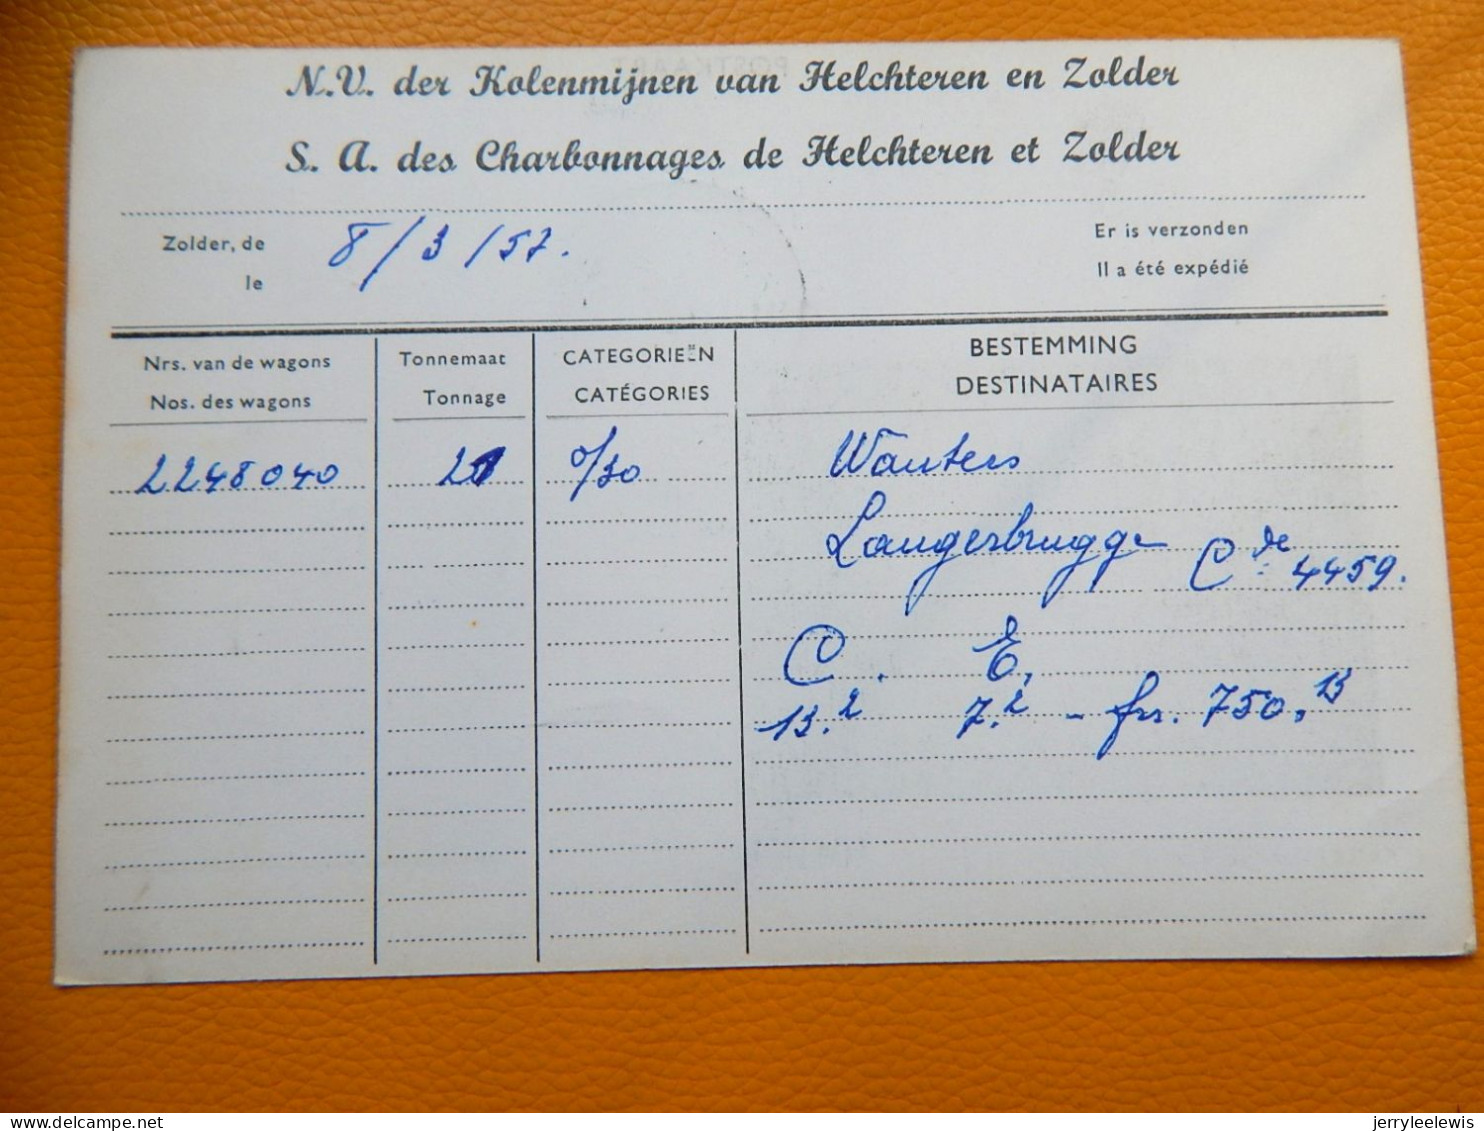 N.V. der Kolenmijnen van Helchteren en Zolder
S. A. des Charbonnages de Helchteren et Zolder
Zolder, de 8/3/57. Er is verzonden
le Il a été expédié
Nrs. van de wagons Tonnemaat CATEGORIEËN BESTEMMING
Nos. des wagons Tonnage CATÉGORIES DESTINATAIRES
2248040 21 0/30 Wauters
Langerbrugge Cde 4459.
C. E.
13.2 7.2 - frs. 750,13
delcampe.net
jerryleelewis